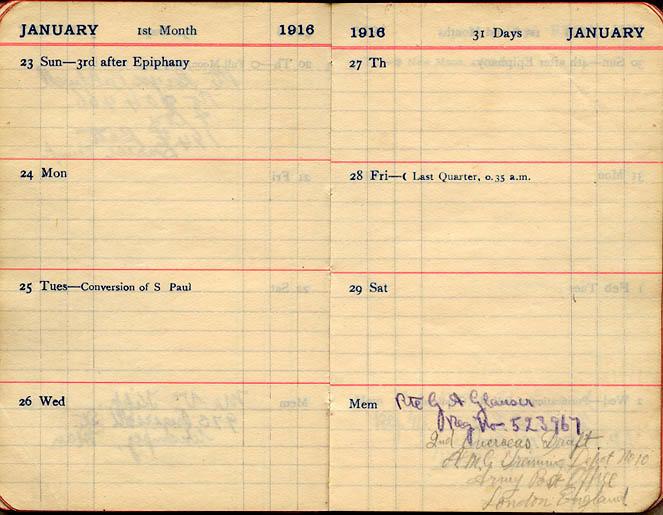 JANUARY 1st Month 1916
23 Sun—3rd after Epiphany
24 Mon
25 Tues—Conversion of S Paul
26 Wed
1916 31 Days JANUARY
27 Th
28 Fri—( Last Quarter, 0.35 a.m.
29 Sat
Mem Pte G A Glanser
Reg No 523967
2nd Overseas Draft
A.M.C Training Depot No 10
Army Post Office
London England